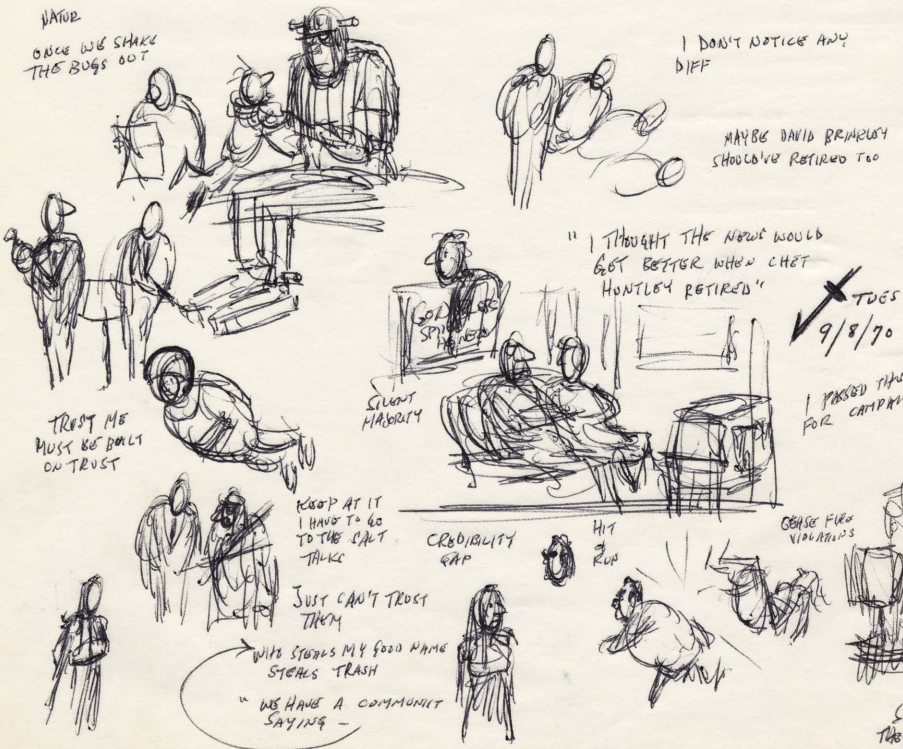 NATUR
ONCE WE SHAKE
THE BUGS OUT
I DON'T NOTICE ANY
DIFF
MAYBE DAVID BRINKLEY
SHOULD'VE RETIRED TOO
"I THOUGHT THE NEWS WOULD
GET BETTER WHEN CHET
HUNTLEY RETIRED"
TUES
9/8/70
SILENT
MAJORITY
I PASSED
FOR CAMPA
TRUST ME
MUST BE BUILT
ON TRUST
KEEP AT IT
I HAVE TO GO
TO THE SALT
TALKS
CREDIBILITY
GAP
HIT
&
RUN
CEASE FIRE
VIOLATIONS
JUST CAN'T TRUST
THEM
WHO STEALS MY GOOD NAME
STEALS TRASH
"WE HAVE A COMMUNIST
SAYING –